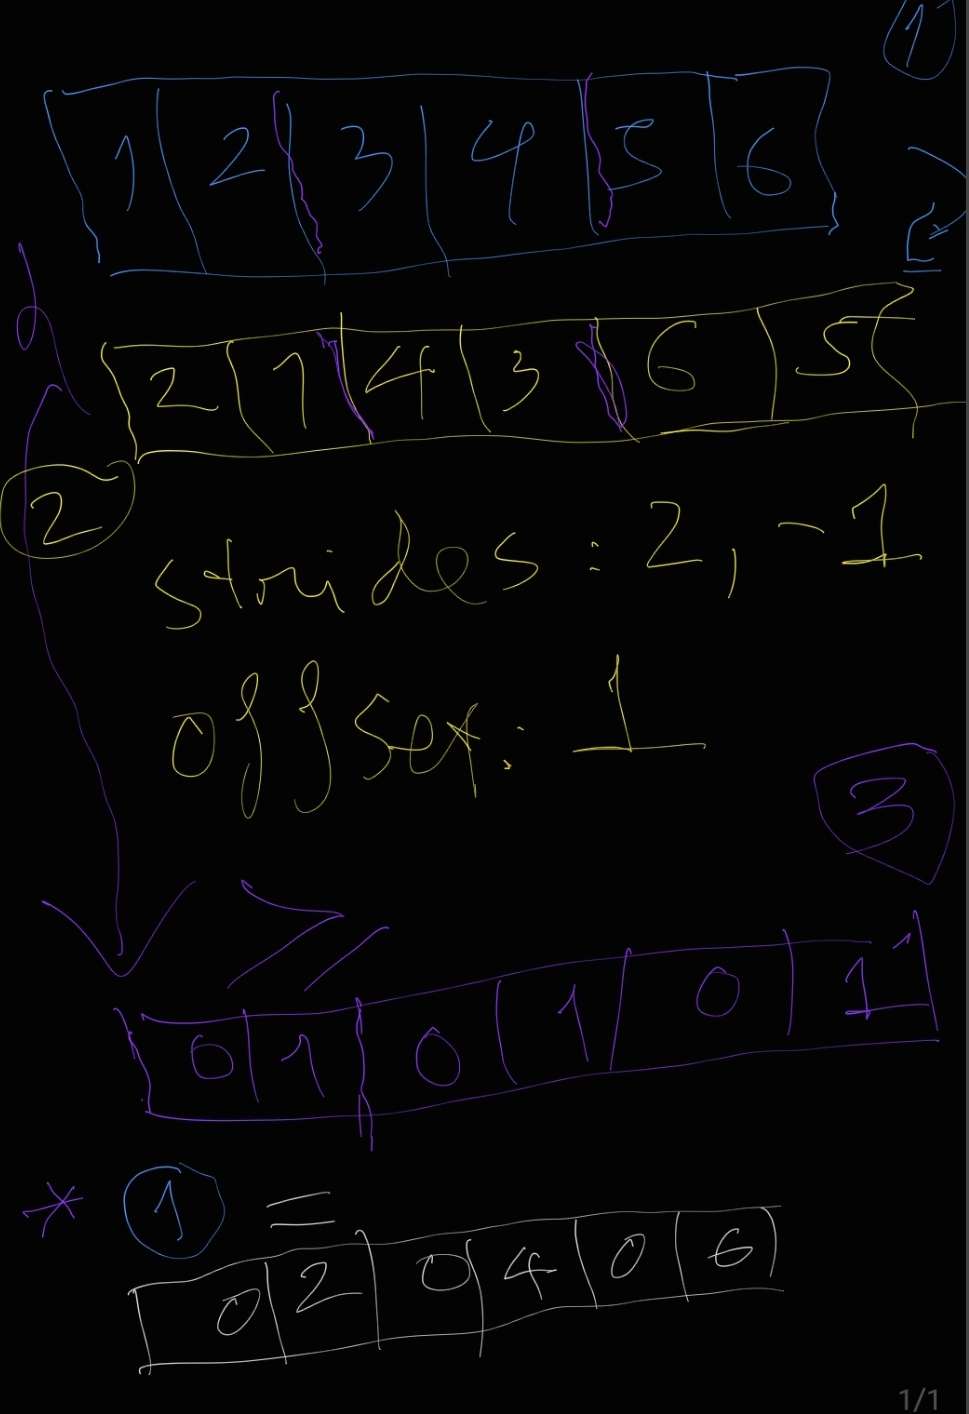 1
1 2 3 4 5 6
2 1 4 3 6 5
2
strides: 2, -1
offset: 1
3
>
0 1 0 1 0 1
* 1 =
0 2 0 4 0 6
1/1